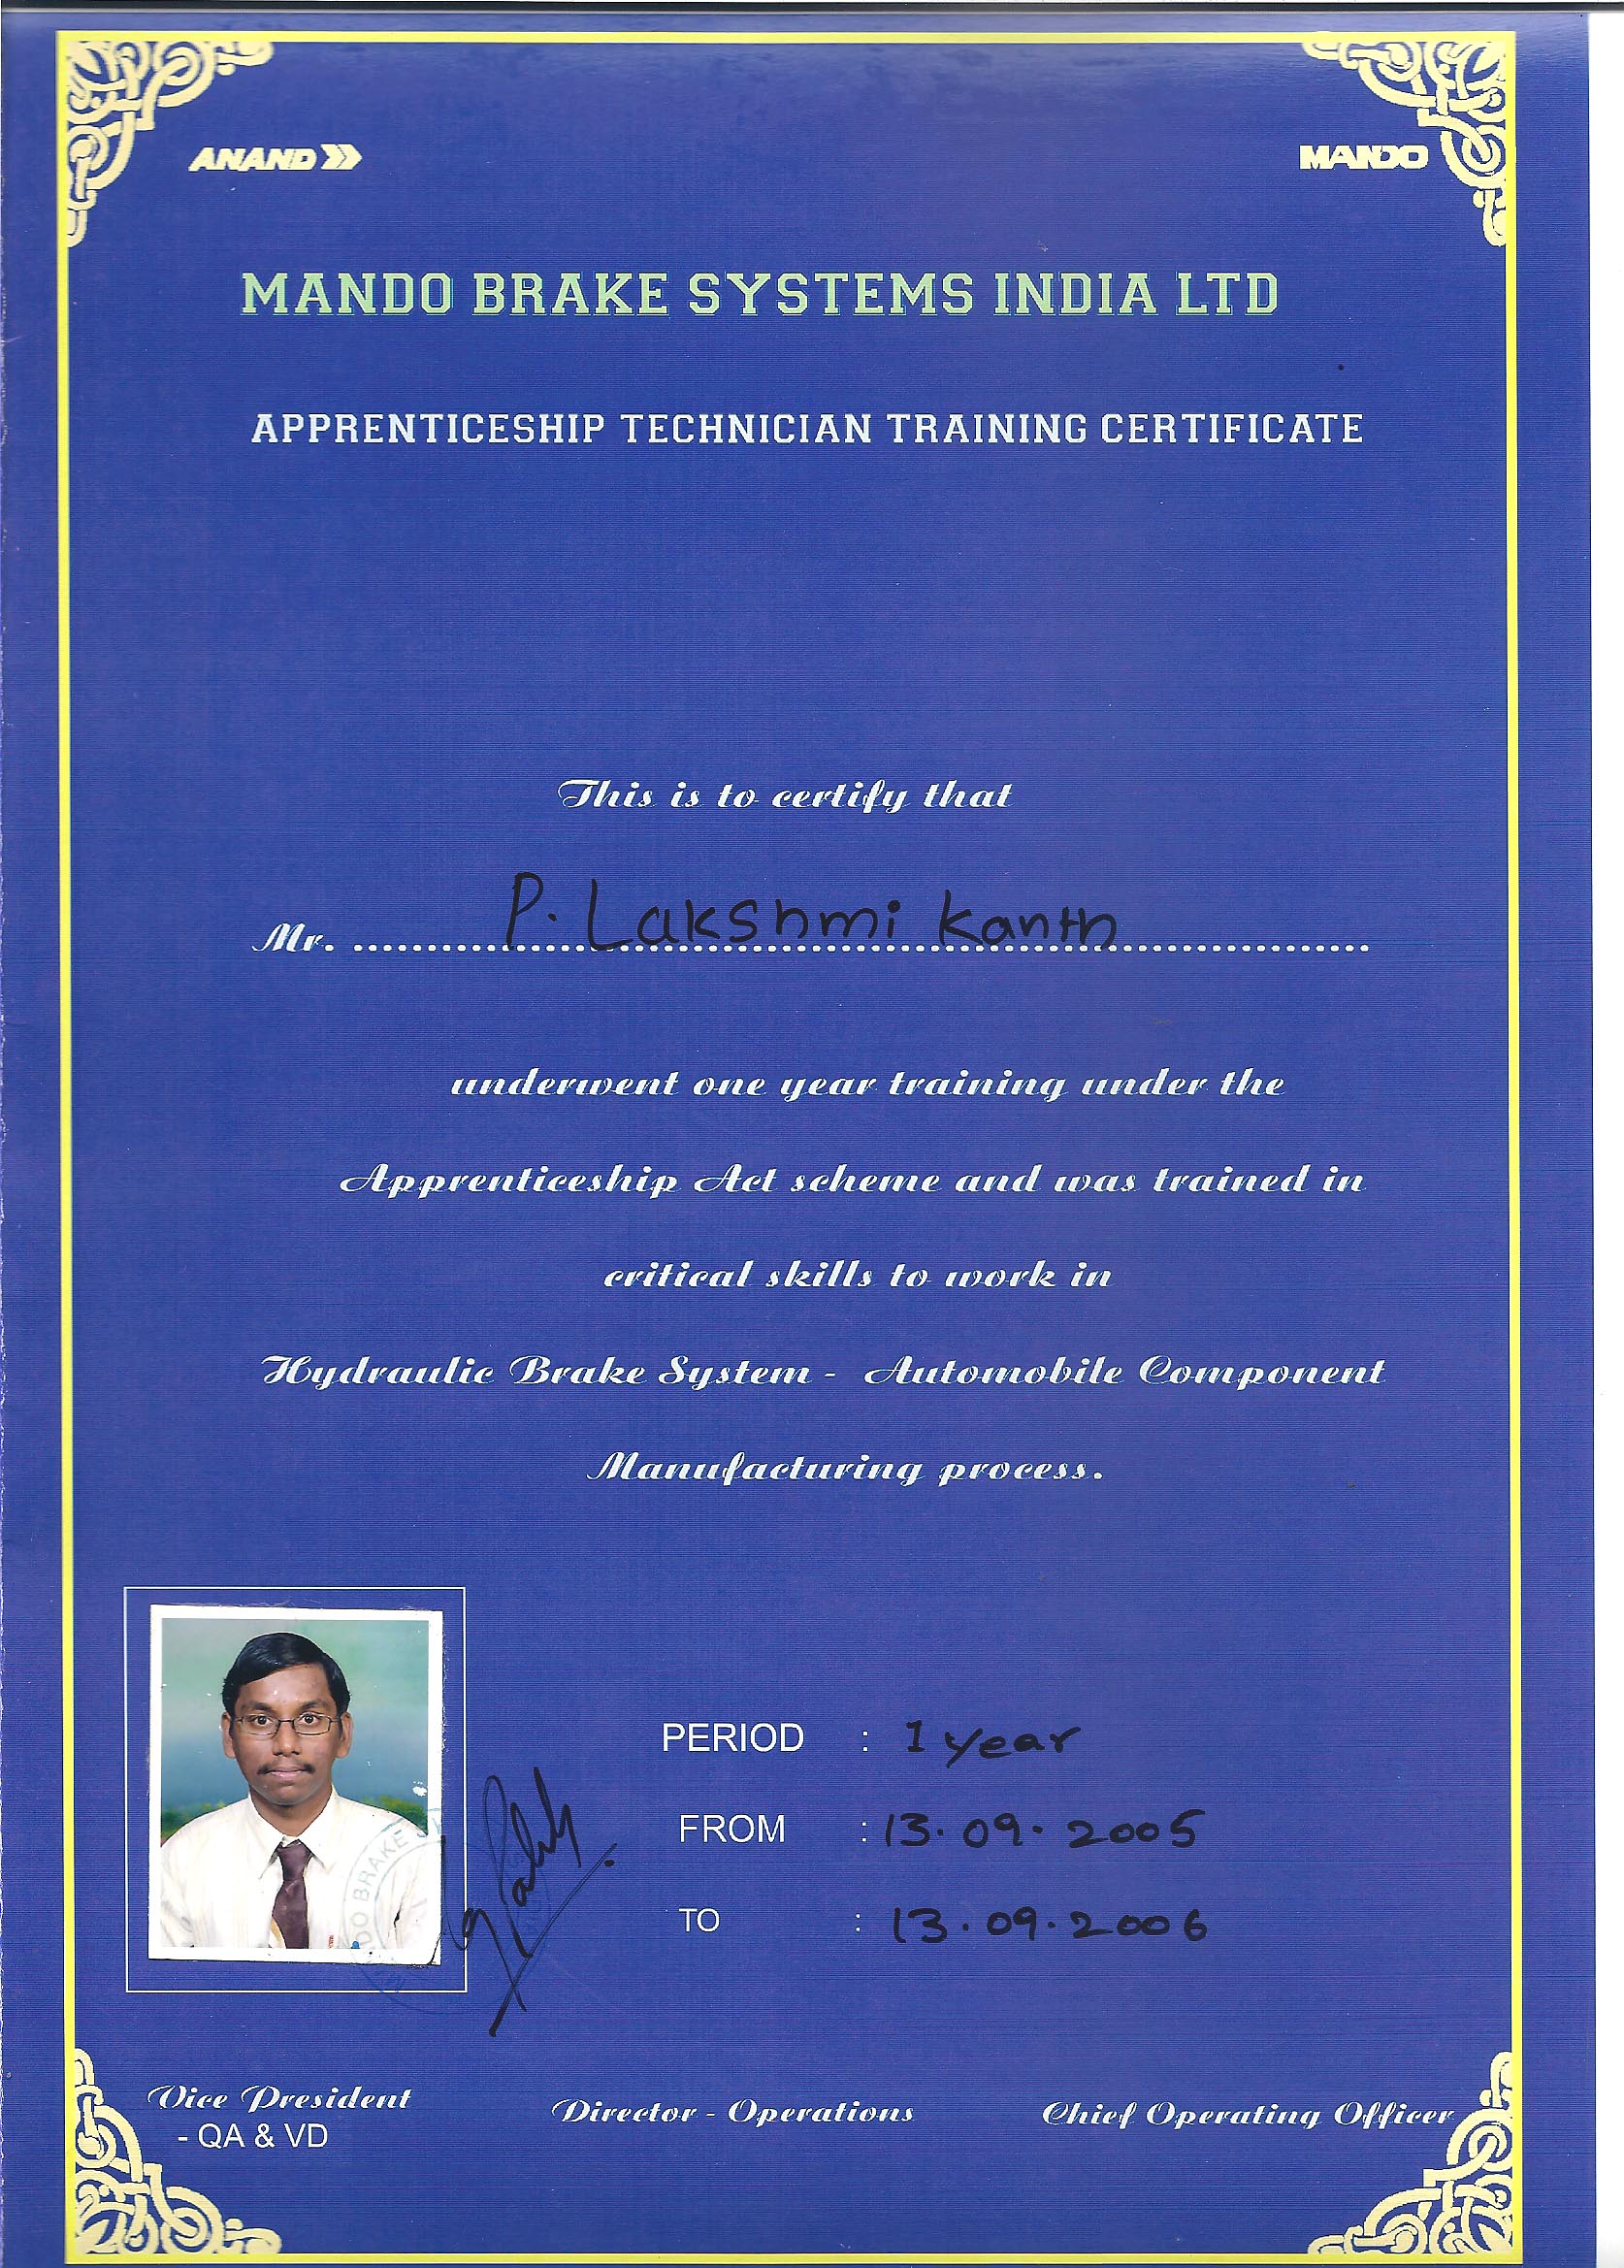 ANAND
MANDO
MANDO BRAKE SYSTEMS INDIA LTD
APPRENTICESHIP TECHNICIAN TRAINING CERTIFICATE
This is to certify that
Mr. P. Lakshmi Kanth
underwent one year training under the
Apprenticeship Act scheme and was trained in
critical skills to work in
Hydraulic Brake System - Automobile Component
Manufacturing process.
PERIOD : 1 year
FROM : 13.09.2005
TO : 13.09.2006
DO BRAKE
Vice President
- QA & VD
Director - Operations
Chief Operating Officer